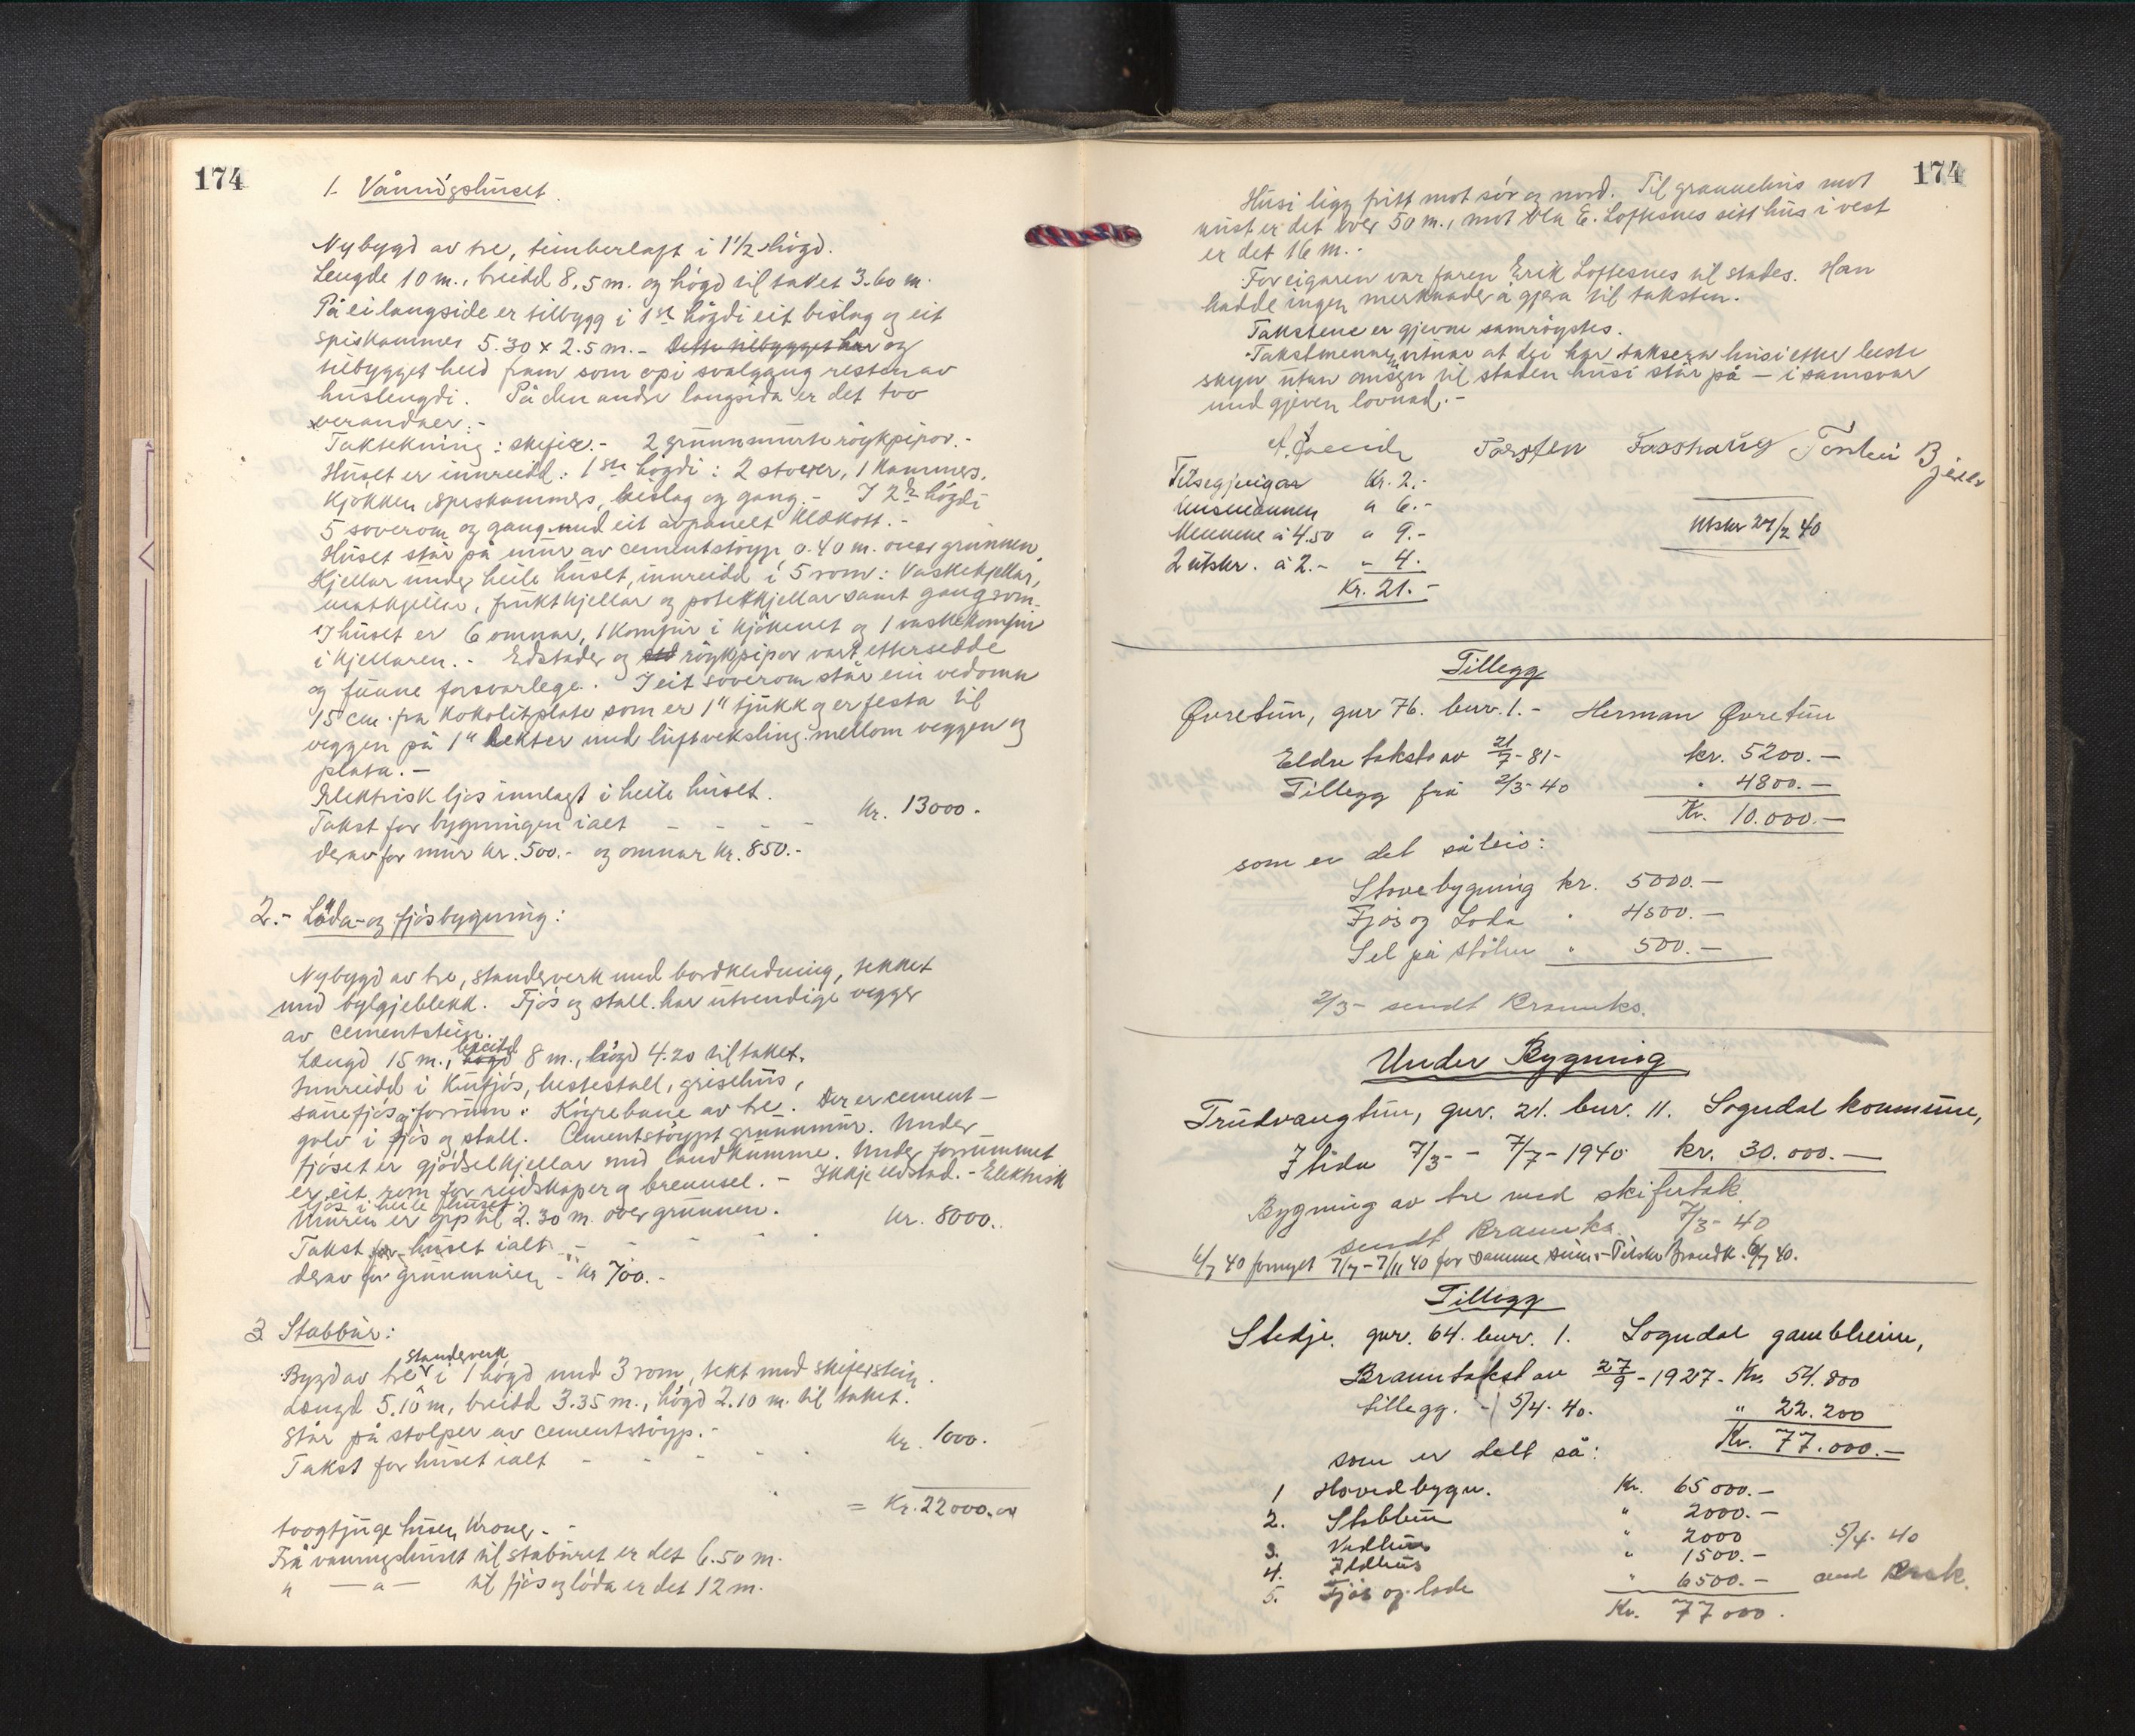 174
1. Våningshuset.
Nybygd av tre, timberlaft i 1½ högd.
Lengde 10 m., breidd 8,5 m. og högd til taket 3.60 m.
På ei langside er tilbygg i 1ste högdi eit bislag og eit
spiskammer 5.30 x 2.5 m. - Dette tilbygget har og
tilbygget heid fram som opi svalgang resten av
huslengdi. På den andre langsida er det two
verandaer. -
Taktekning: skifer. - 2 grunnmurte röykpipor. -
Huset er innreidd: 1ste högdi: 2 stover, 1 kammers,
kjökken, spiskammers, beislag og gang. - I 2dre högdi
5 soverom og gang med eit avpanelt klækott. -
Huset står på mur av cementstöyp 0.40 m. over grunnen.
Kjellar under heile huset, innreidd i 5 rom: Vaskekjellar,
matkjellar, fruktkjellar og potetkjellar samt gangrom.
I huset er 6 omnar, 1 komfur i kjökenet og 1 vaskekomfur
i kjellaren. - Eldstader og röykpipor vart ettersedde
og funne forsvarlege. I eit soverom står ein vedomn
15 cm. fra kokolitplate som er 1" tjukk og er festa til
veggen på 1" lekter med luftveksling mellom veggen og
plata. -
Elektrisk ljos innlagt i heile huset.
Takst for bygningen ialt - - - - Kr. 13000.
derav for mur kr. 500.- og omnar kr. 850.-
2.- Löda- og fjösbygning:
Nybygd av tre, standerverk med bordkledning, tekket
med bylgjeblekk. Fjös og stall har utvendige vegger
av cementstein.
Længd 15 m., högd breidd 8 m., högd 4.20 til taket.
Innreidd i Kufjös, hestestall, grisehus,
sauefjös og forrum. Köyrebane av tre. Der er cement-
golv i fjös og stall. Cementstöypt grunnmur. Under
fjöset er gjödselkjellar med landkumme. Under forrummet
er eit rom for reidskaper og brennsel. - Ikkje eldstad. - Elektrisk
ljos i heile huset.
Muren er opp til 2.30 m. over grunnen.
Takst for huset ialt - - - - Kr. 8000.
derav for grunnmuren - Kr 700.-
3. Stabbur:
Bygd av tre standerverk i 1 högd med 3 rom, tekt med skiferstein.
Længd 5.10 m, breidd 3.35 m., högd 2.10 m. til taket.
Står på stolper av cementstöyp. -
Takst for huset ialt - - - - Kr. 1000.
= Kr. 22000.00
tvogtjuge tusen kroner. -
Frå våningshuset til stabburet er det 6.50 m.
" — " — til fjös og löda er det 12 m.
174
Husi ligg fritt mot sör og nord. Til grannehus mot
aust er det over 50 m., mot Ola E. Loftesnes sitt hus i vest
er det 16 m. -
For eigaren var faren Erik Loftesnes til stades. Han
hadde ingen merknader å gjera til taksten.
Takstene er gjevne samröystes.
Takstmennene uttaler at dei har taksera husi etter beste
skyn utan omsyn til staden husi står på - i samsvar
med gjeven lovnad. -
Torsten Torstein
Tilsegjingar Kr. 2.-
" 6.-
Mennene á 4.50 " 9.-
2 utskr. á 2.- " 4.
Kr. 21.-
Utskr 27/2 40
Tillegg
Övretun, gnr 76. bnr. 1. - Herman Övretun
Eldre takst av 21/7-81- kr. 5200.-
Tillegg frå 2/3-40 " 4800.-
Kr. 10.000.-
som er delt såleis:
Stovebygning kr. 5000.-
Fjös og Loda " 4500.-
Sel på stölen " 500.-
2/3- sendt Brannks.
Under Bygning
Trudvangtun, gnr. 21. bnr. 11. Sogndal kommune,
I tida 7/3 - 7/7-1940 kr. 30.000.-
Bygning av tre med skifertak.
sendt Brannks. 7/3-40
6/7 40 fornyet 7/7-7/11 40 for samme sum - Tilskr Brandk. 6/7 40.
Tillegg
Stedje. gnr. 64. bnr. 1. Sogndal gamleheim,
Branntakst av 27/9-1927- Kr. 54.800
tillegg. - 5/4-40. " 22.200
Kr. 77.000.-
som er delt så:
1 Hovedbygn. Kr. 65000.-
2. Stabbur " 2000.-
3. Vedhus " 2000
4. Ildhus " 1500.- 5/4-40
5. Fjös og lade " 6500.-
Kr. 77000.